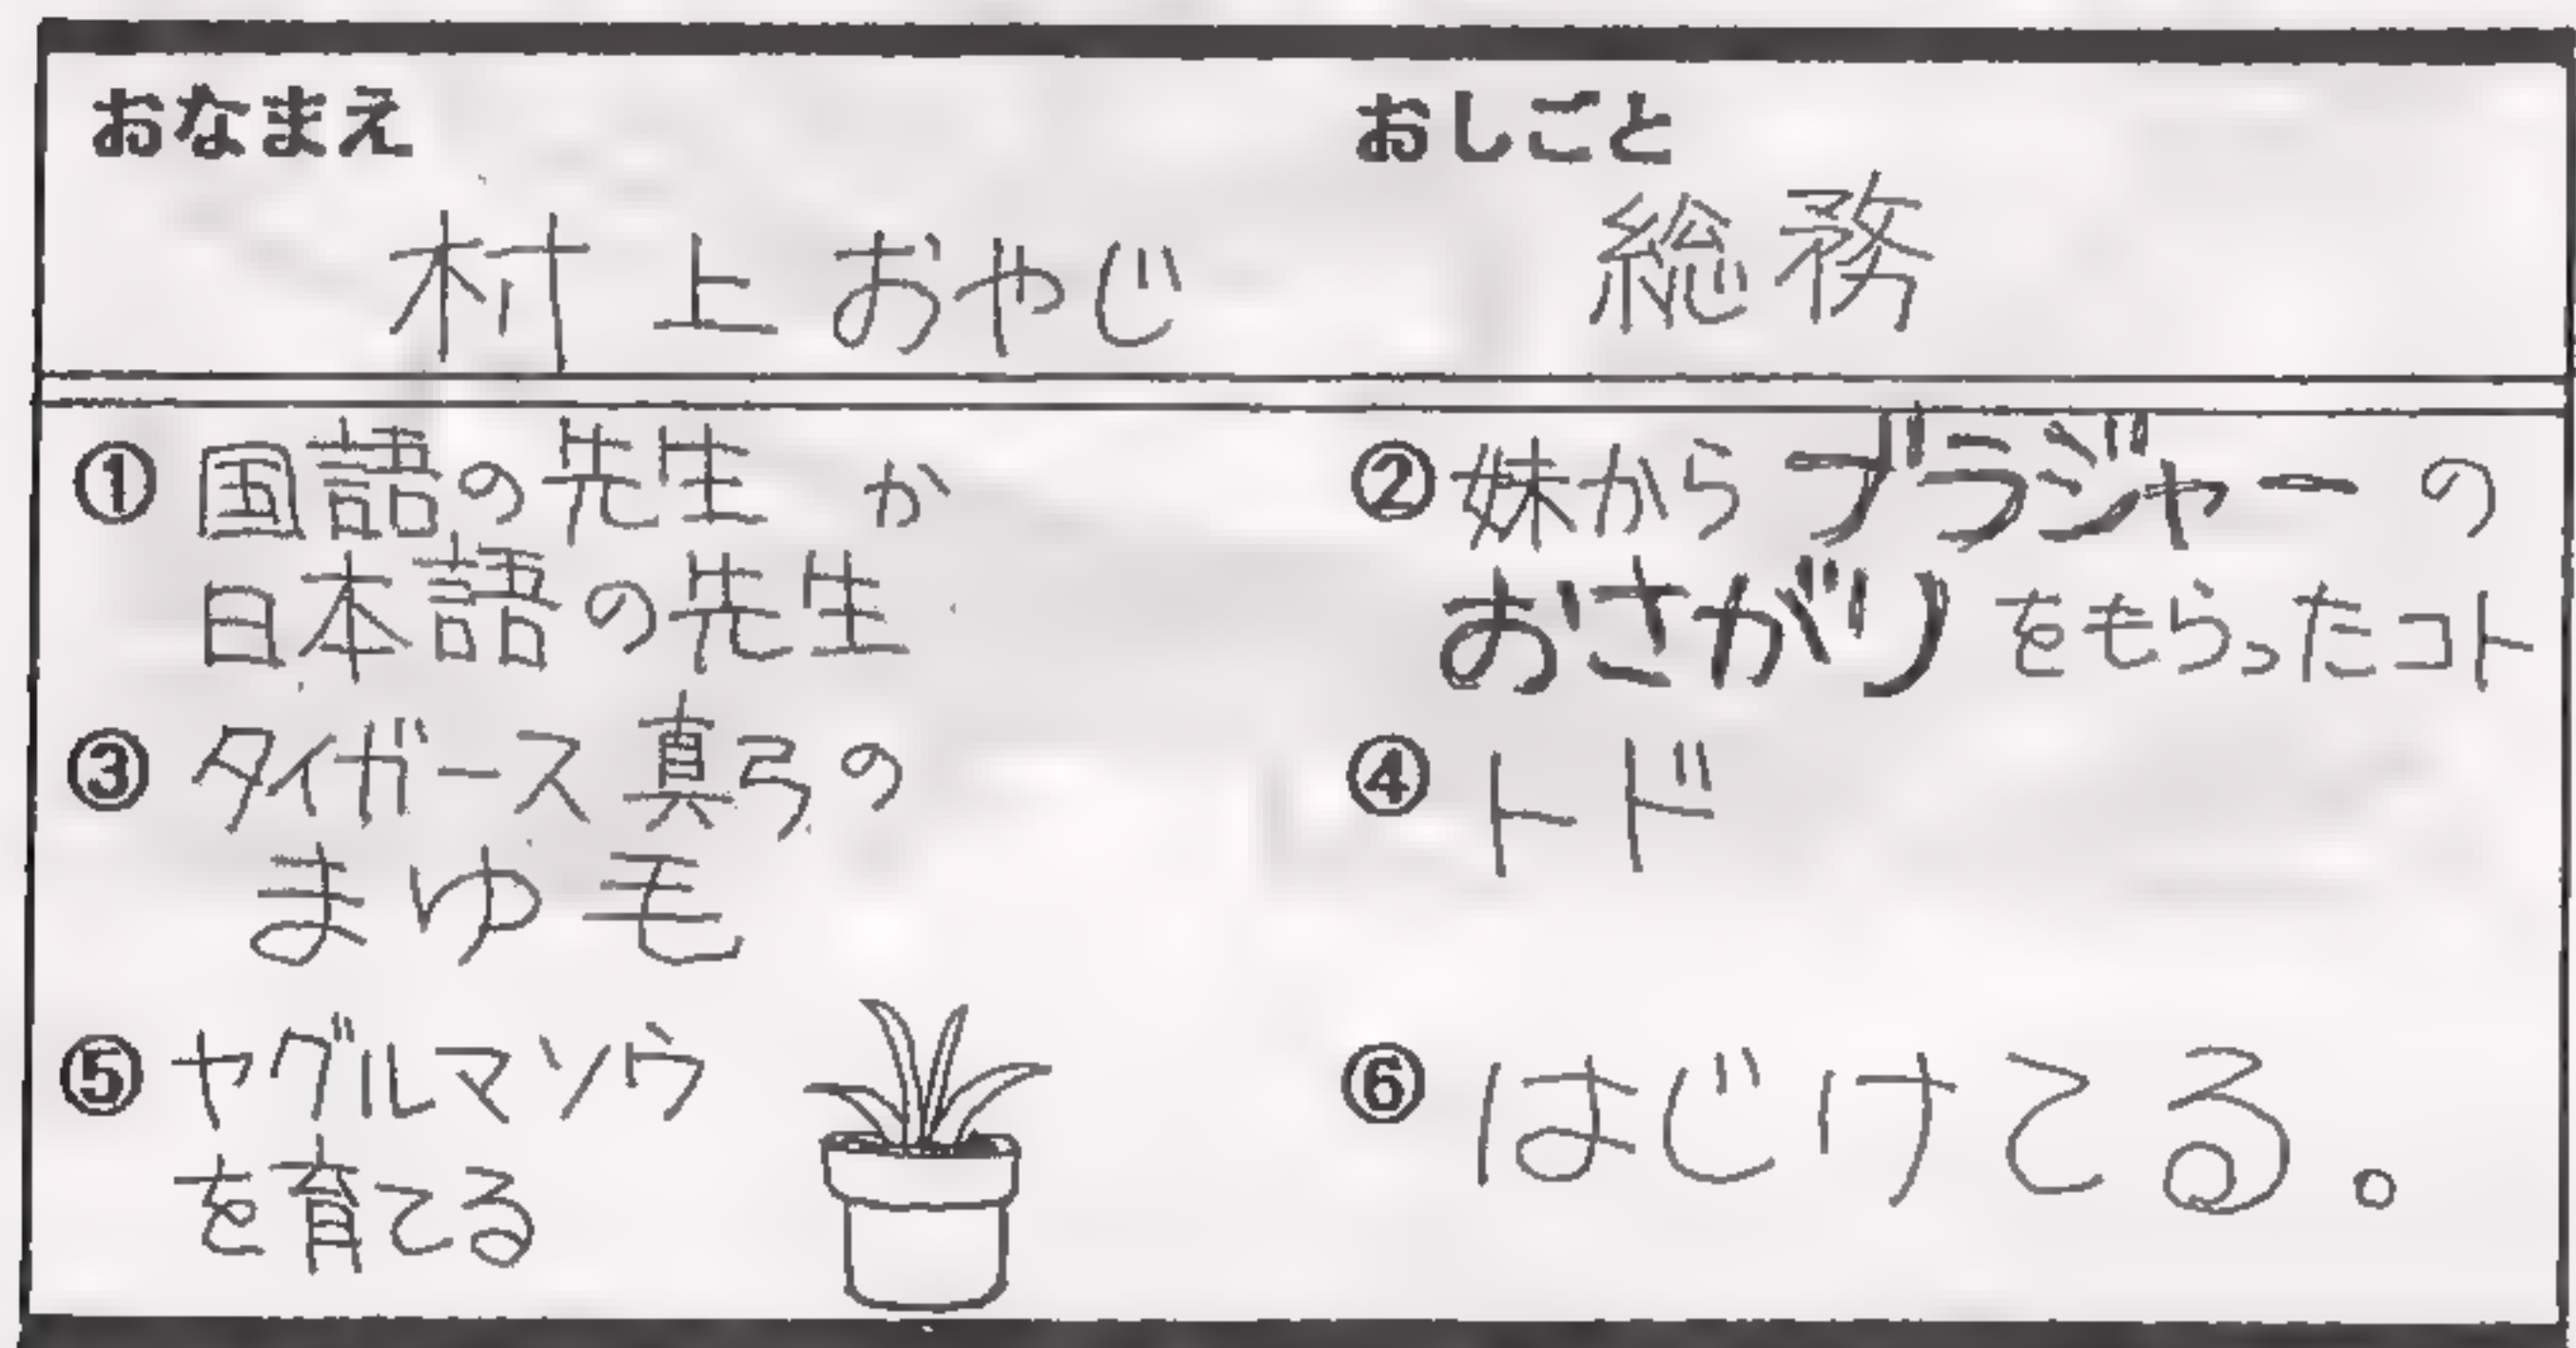 おなまえ
村上おやじ
おしごと
総務
① 国語の先生 か
日本語の先生
② 妹からブラジャーの
おさがりをもらったコト
③ タイガース真弓の
まゆ毛
④ トド
⑤ ヤグルマソウ
を育てる
⑥ はじけてる。